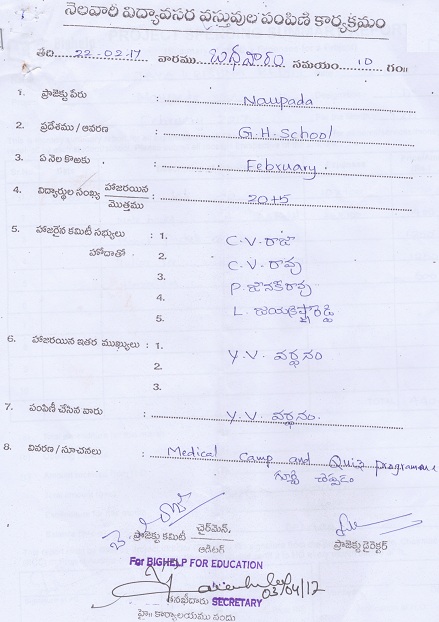 నెలవారీ విద్యావసర వస్తువుల పంపిణి కార్యక్రమం
తేది. 22-02-17 వారము బుధవారం సమయం 10 గం॥
1. ప్రాజెక్టు పేరు : Naupada
2. ప్రదేశము / ఆవరణ : G.H-School
3. ఏ నెల కొఱకు : February.
4. విద్యార్థుల సంఖ్య హాజరయిన / మొత్తము : 20+5
5. హాజరైన కమిటీ సభ్యులు : 1. C.V.రాజు
హోదాతో 2. C.V.రావు
3. P.జానకీరావు
4. L.
5.
6. హాజరయిన ఇతర ముఖ్యులు : 1. Y.V. వర్ధనం
2.
3.
7. పంపిణీ చేసిన వారు : Y.V. వర్ధనం.
8. వివరణ / సూచనలు : Medical Camp and Quiz programme
గూర్చి చెప్పడం
ప్రాజెక్టు కమిటీ చైర్‌మెన్, / ఆడిటర్
ప్రాజెక్టు డైరెక్టర్
For BIGHELP FOR EDUCATION
03/04/17
తనిఖీదారు SECRETARY
హై॥ కార్యాలయము నందు